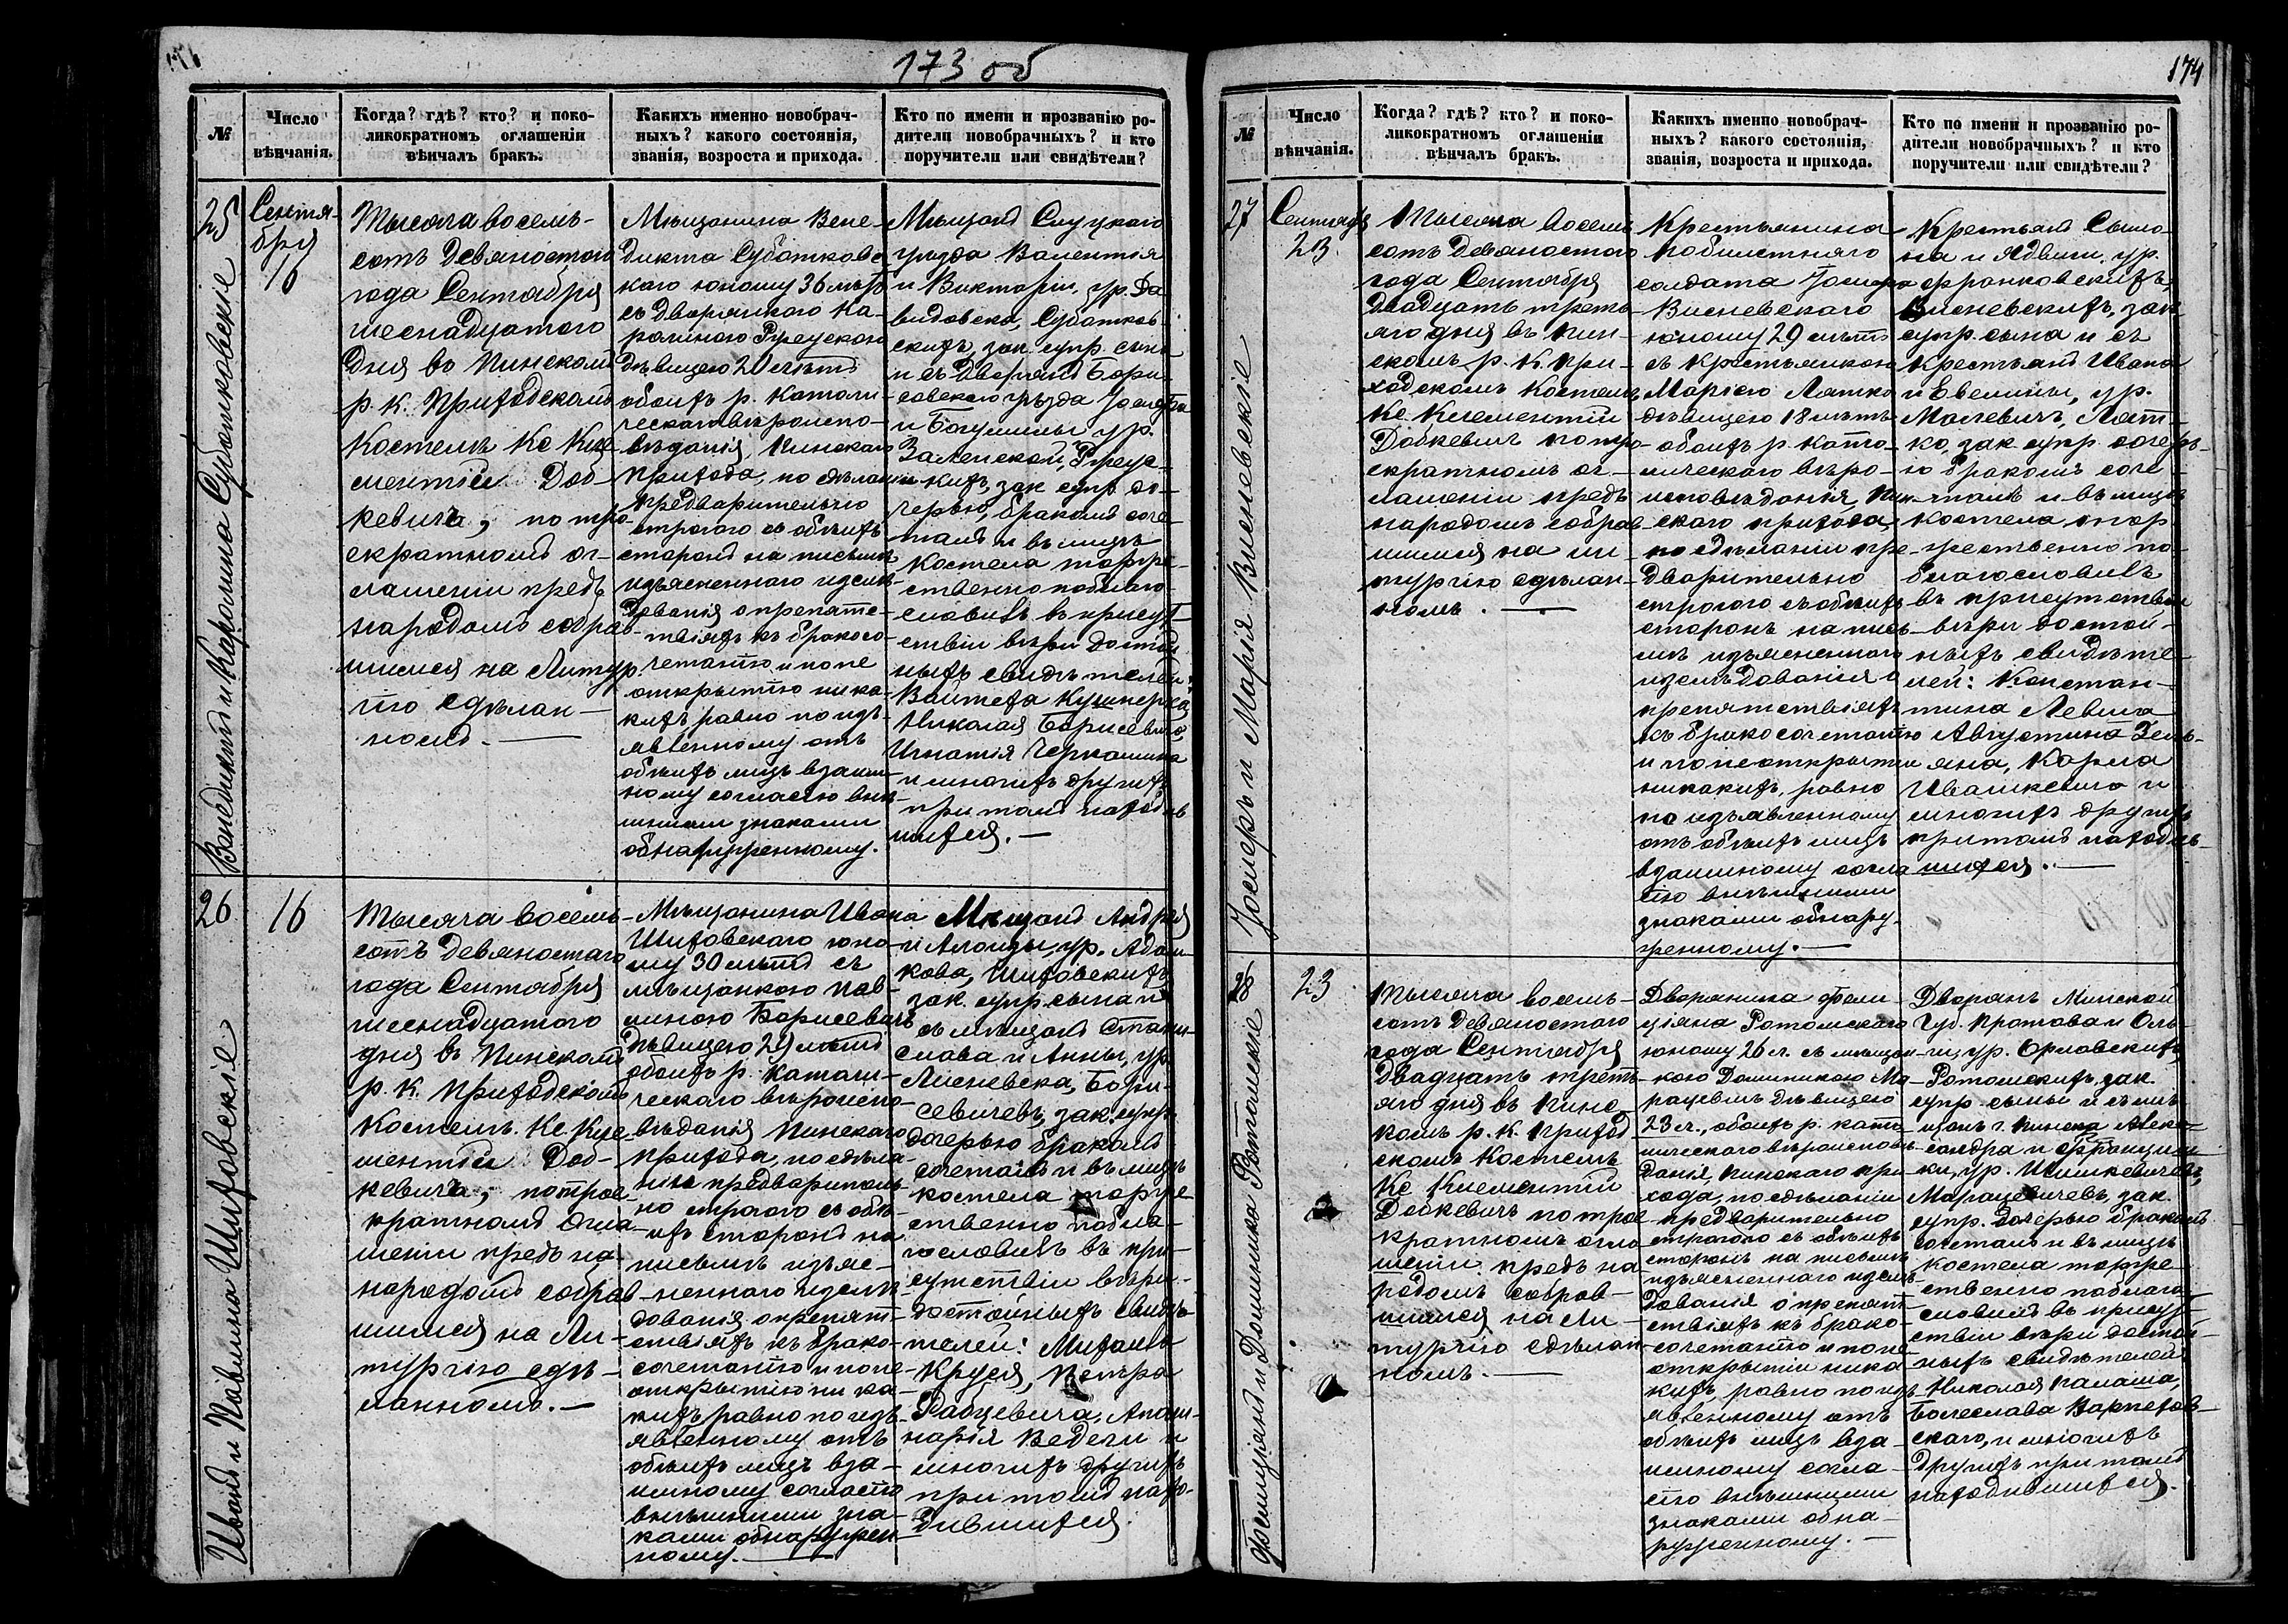 173 об
174
№
Число
вѣнчанія.
Когда? гдѣ? кто? и поко-
ликократномъ оглашеніи
вѣнчалъ бракъ.
Какихъ именно новобрач-
ныхъ? какого состоянія,
званія, возроста и прихода.
Кто по имени и прозванію ро-
дители новобрачныхъ? и кто
поручители или свидѣтели?
25
Венедиктъ и Каролина Суботковскіе
Сентя-
бря
16
Тысяча восемь-
сотъ девяностаго
года Сентября
шеснадцатого
дня въ Пинскомъ
р. к. Приходскомъ
Костелѣ Кс Кле-
ментій Доб-
кевичъ, по тро-
екратномъ ог-
лашеніи предъ
народомъ собрав-
шимся на Литур-
гію сдѣлан-
номъ.
Мѣщанина Вене-
дикта Субатковс-
каго юношу 36 лѣтъ
съ дворянкою Ка-
ролиною
дѣвицею 20 лѣтъ
обоихъ р. католи-
ческаго вѣроиспо-
вѣданія, Пинскаго
прихода, по сдѣланіи
предварительно
строгого съ обѣихъ
сторонъ на письмѣ
изъясненного изслѣ-
дованія о препятс-
твіяхъ къ бракосо-
четанію и по не
открытію ника-
кихъ равно по изъ-
явленному отъ
обѣихъ лицъ взаим-
ному согласію внѣ-
шними знаками
обнаруженному.
Мѣщанъ Слуцкаго
уѣзда Валентія
и Викторіи, ур. Да-
видовска, Субатков-
скихъ зак. супр. сына
и съ Дворянъ Бори-
совскаго уѣзда Іосифа
и Богумилы ур.
Залепской,
зак супр до-
черью, бракомъ соче-
талъ и въ лицѣ
Костела торже-
ственно поблаго-
словилъ въ присут-
ствіи вѣри достой-
ныхъ свидѣтелей:
Войтеха Кушнера,
Николая Борисевича,
Игнатія
и многихъ другихъ
при томъ находив-
шихся.
26
Иванъ и Павлина Шиховскіе
16
Тысяча восемь-
сотъ девяностаго
года Сентября
шеснадцатого
дня въ Пинскомъ
р. к. Приходскомъ
Костелѣ Кс Кле-
ментій Доб-
кевичъ, по трое-
кратномъ огла-
шеніи предъ на-
народомъ собрав-
шимся на Ли-
тургію сдѣ-
ланномъ.
Мѣщанина Ивана
Шиховскаго юно-
шу 30 лѣтъ съ
мѣщанкою Пав-
линою Борисевичъ
дѣвицею 29 лѣтъ
обоихъ р. католи-
ческаго вѣроиспо-
вѣданія Пинскаго
прихода, по сдѣла-
ніи предваритель-
но строгого съ обѣ-
ихъ сторонъ на
письмѣ изъяс-
ненного изслѣ-
дованія о препят-
ствіяхъ къ брако-
сочетанію и по не-
открытію ни ка-
кихъ равно по изъ-
явленному отъ
обѣихъ лицъ вза-
имному согласію
внѣшними зна-
ками обнаружен-
ному.
Мѣщанъ Андрея
и Алоизы, ур. Адам-
кова, Шиховскихъ
зак. супр. сына и
съ мѣщанъ Стани-
слава и Анны, ур.
Лисневска, Бори-
севичевъ, зак. супр.
дочерью бракомъ
сочеталъ и въ лицѣ
костела торже-
ственно побла-
гословилъ въ при-
сутствіи вѣри-
достойныхъ свидѣ-
телей: Михаила
Круся, Петра
Рабцевича, Апали-
нарія Ведечи и
многихъ другихъ
при томъ нахо-
дившихся.
№
Число
вѣнчанія.
Когда? гдѣ? кто? и поко-
ликократномъ оглашеніи
вѣнчалъ бракъ.
Какихъ именно новобрач-
ныхъ? какого состоянія,
званія, возроста и прихода.
Кто по имени и прозванію ро-
дители новобрачныхъ? и кто
поручители или свидѣтели?
27
Іосифъ и Марія Висневскіе
Сентября
23
Тысяча восемь
сотъ девяностого
года Сентября
двадцать треть-
яго дня въ Пин-
скомъ р. К. При-
ходскомъ Костелѣ
Кс. Клементій
Добкевичъ по тро-
екратномъ ог-
лашеніи предъ
народомъ собрав-
шимся на ли-
тургію сдѣлан-
номъ.
Крестьянина
побилетнаго
солдата Іосифа
Висневскаго
юношу 29 лѣтъ
съ Крестьянкою
Маріею Лятко
дѣвицею 18 лѣтъ
обоихъ р. като-
лическаго вѣро-
исповѣданія, Пин-
скаго прихода,
по сдѣланіи пре-
дварительно
строгого съ обѣихъ
сторонъ на пись-
мѣ изъясненного
изслѣдованія о
препятствіяхъ
къ бракосочетанію
и по неоткрытіи
никакихъ, равно
по изъявленному
отъ обѣихъ лицъ
взаимному согла-
сію внѣшними
знаками обнару-
женному.
Крестьянъ Сымо-
на и Ядвиги, ур.
Франковскихъ
Висневскихъ, зак
супр. сына и съ
крестьянъ Ивана
и Евелины, ур.
Малевичъ, Лят-
ко, зак супр. дочерь-
ю бракомъ соче-
талъ и въ лицѣ
Костела тор-
жественно по-
благословилъ
въ присутствіи
вѣри достой-
ныхъ свидѣте-
лей: Констан-
тина Левша
Августина
Карла
Ивашкевича и
многихъ другихъ
при томъ находив-
шихся.
28
Фелиціянъ и Доминика Ротомскіе
23
Тысяча восемь-
сотъ девяностаго
года Сентября
двадцать треть-
яго дня въ Пинс-
комъ р. К. Приход-
скомъ Костелѣ
Кс Клементій
Добкевичъ по трое-
кратномъ огла-
шеніи предъ на-
родомъ собрав-
шимся на Ли-
тургію сдѣлан-
номъ.
Дворянина Фели-
ціяна Ротомскаго
юношу 26 л. съ мѣщан-
кою Доминикою Ма-
рацевичъ дѣвицею
23 л., обоихъ р. като-
лическаго вѣроисповѣ-
данія, Пинскаго при-
хода, по сдѣланіи
предварительно
строгого съ обѣихъ
сторонъ на письмѣ
изъясненного изслѣ-
дованія о препят-
ствіяхъ къ брако-
сочетанію и по не-
открытіи ника-
кихъ, равно по изъ-
явленному отъ
обѣихъ лицъ вза-
имному согла-
сію внѣшними
знаками обна-
руженному.
Дворянъ Минской
Губ. Протава и Оль-
ги, ур. Орловскихъ
Ротомскихъ, зак.
супр. сына и съ мѣ-
щанъ г. Пинска Алек-
сандра и Францишки-
ки, ур. Шишкевичевъ,
Марацевичевъ, зак.
супр. дочерью бракомъ
сочеталъ и въ лицѣ
Костела торже-
ственно поблаго-
словилъ въ присут-
ствіи вѣри достой-
ныхъ свидѣтелей
Николая Палаша,
Болеслава
скаго, и многихъ
другихъ при томъ
находившихся.